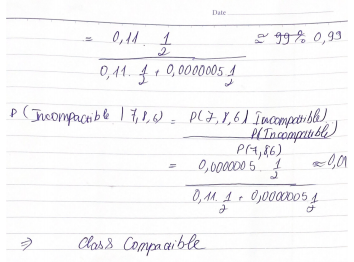 Date
= 0,11 . 1/2 ≈ 99% 0,99
0,11 . 1/2 + 0,0000005 1/2
P(Incompatible | 7,8,6) = P(7,8,6| Incompatible) P(Incompatible)
P(7,86)
= 0,0000005 . 1/2 ≈ 0,01
0,11. 1/2 + 0,0000005 1/2
⇒ Class Compatible